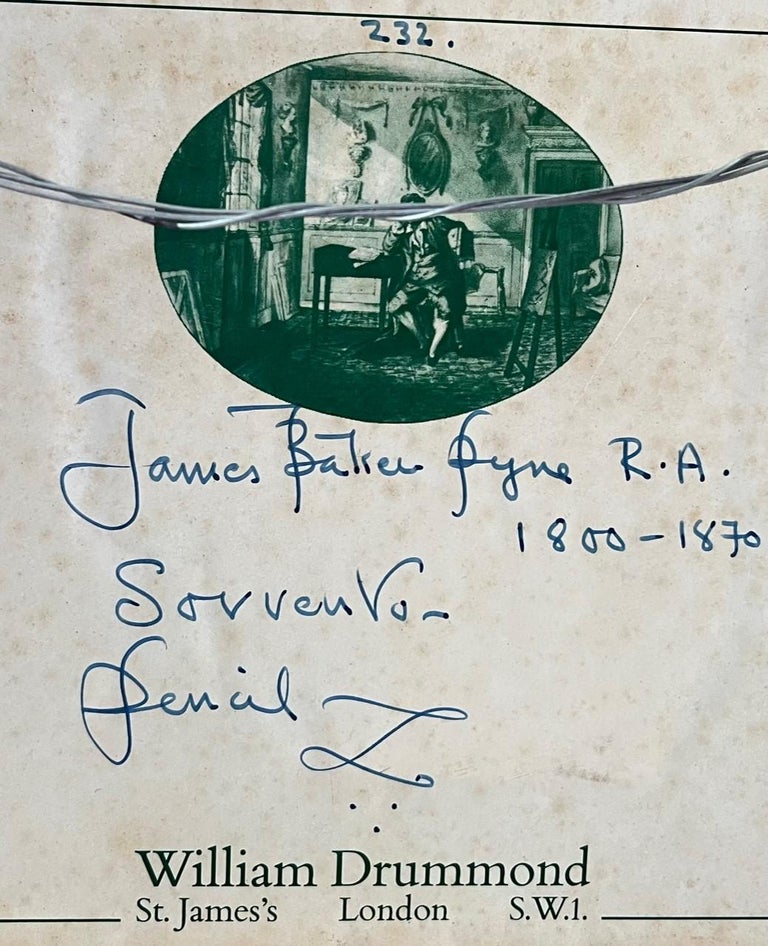 232.
James Baker Pyne R.A.
1800-1870
Sorrento-
Pencil
William Drummond
St. James's London S.W.1.